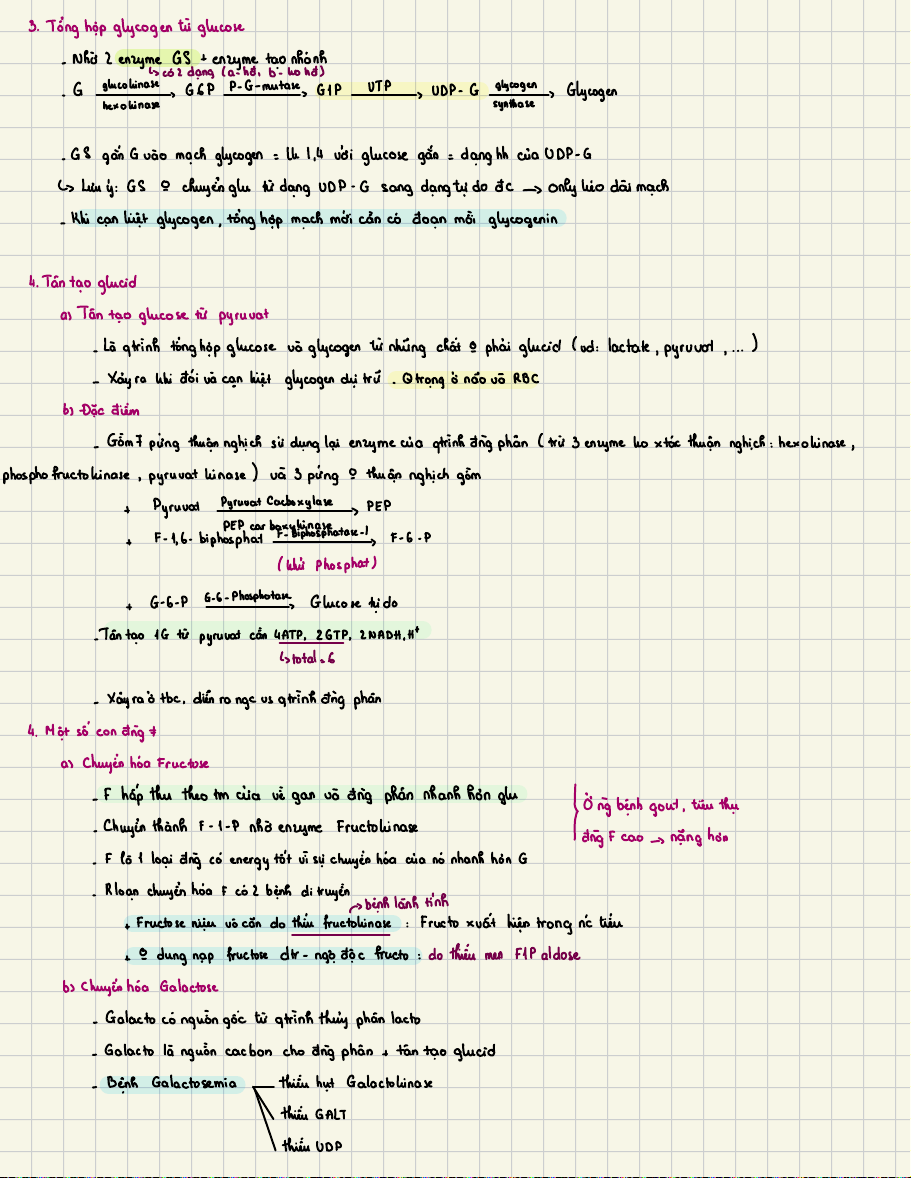 3. Tổng hợp glycogen từ glucose
- Nhờ 2 enzyme GS + enzyme tạo nhánh
↳ có 2 dạng (a-hđ, b-ko hđ)
- G glucokinase hexokinase → G6P P-G-mutase → G1P UTP → UDP-G glycogen synthase → Glycogen
- GS gắn G vào mạch glycogen = lk 1,4 với glucose gắn = dạng hh của UDP-G
↳ Lưu ý: GS O chuyển glu từ dạng UDP-G sang dạng tự do đc → only kéo dài mạch
- Khi cạn kiệt glycogen, tổng hợp mạch mới cần có đoạn mồi glycogenin
4. Tân tạo glucid
a) Tân tạo glucose từ pyruvat
- Là qtrình tổng hợp glucose và glycogen từ những chất O phải glucid (vd: lactate, pyruvat, ...)
- Xảy ra khi đói và cạn kiệt glycogen dự trữ. Qtrọng ở não và RBC
b) Đặc điểm
- Gồm 7 pứng thuận nghịch sử dụng lại enzyme của qtrình đng phân (trừ 3 enzyme ko xtác thuận nghịch: hexokinase,
phosphofructokinase, pyruvat kinase) và 3 pứng O thuận nghịch gồm
+ Pyruvat Pyruvat Cacboxylase PEP carboxykinase → PEP
+ F-1,6-biphosphat F-Biphosphatase-1 → F-6-P
(khử Phosphat)
+ G-6-P G-6-Phosphotase → Glucose tự do
- Tân tạo 1G từ pyruvat cần 4ATP, 2GTP, 2NADH,H⁺
↳ total = 6
- Xảy ra ở tbc, diễn ra ngc vs qtrình đng phân
4. Một số con đng ≠
a) Chuyển hóa Fructose
- F hấp thu theo tm cửa về gan và đng phân nhanh hơn glu
- Chuyển thành F-1-P nhờ enzyme Fructokinase
- F là 1 loại đng có energy tốt vì sự chuyển hóa của nó nhanh hơn G
Ở ng bệnh gout, tiêu thụ
đng F cao → nặng hơn
- Rloạn chuyển hóa F có 2 bệnh di truyền
→ bệnh lành tính
+ Fructose niệu vô căn do thiếu fructokinase : Fructo xuất hiện trong nc tiểu
+ O dung nạp fructose dtr - ngộ độc fructo : do thiếu men F1P aldose
b) Chuyển hóa Galactose
- Galacto có nguồn gốc từ qtrình thủy phân lacto
- Galacto là nguồn cacbon cho đng phân + tân tạo glucid
- Bệnh Galactosemia — thiếu hụt Galactokinase
thiếu GALT
thiếu UDP